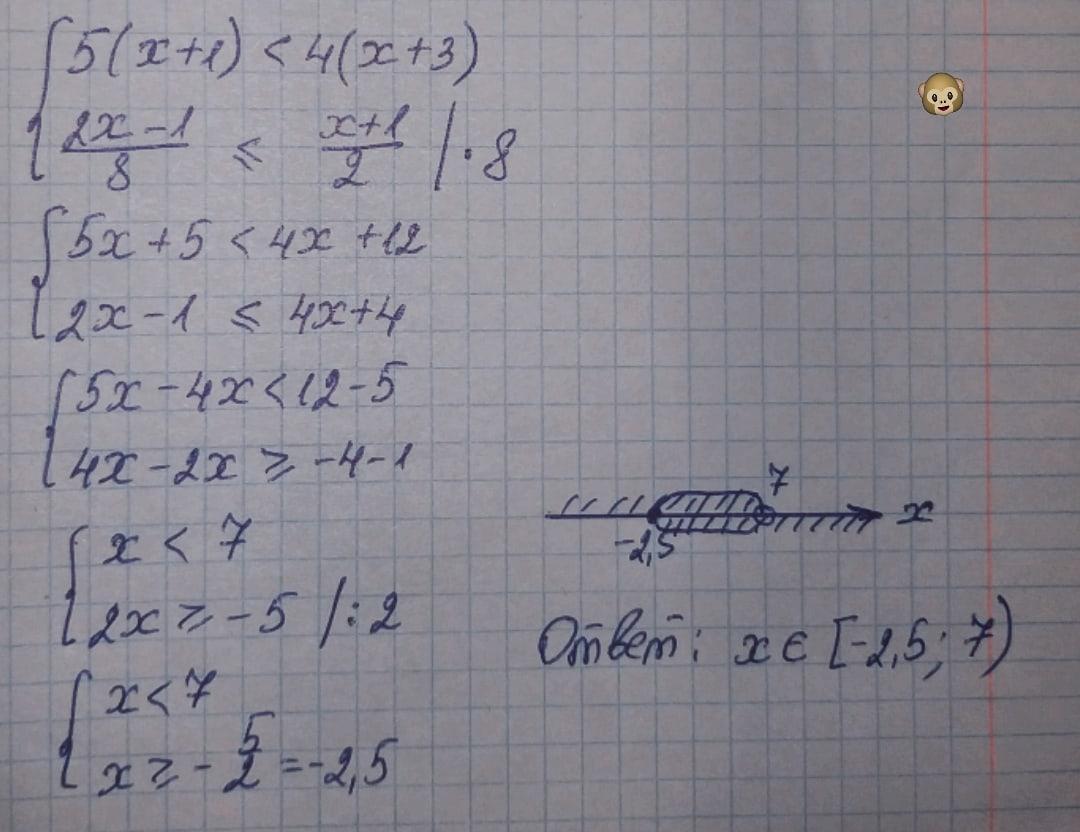 5(x+1) < 4(x+3)
(2x-1)/8 ≤ (x+1)/2 | · 8
5x+5 < 4x+12
2x-1 ≤ 4x+4
5x-4x < 12-5
4x-2x ≥ -4-1
x < 7
2x ≥ -5 | : 2
x < 7
x ≥ -5/2 = -2,5
7
-2,5
x
Ответ: x ∈ [-2,5; 7)